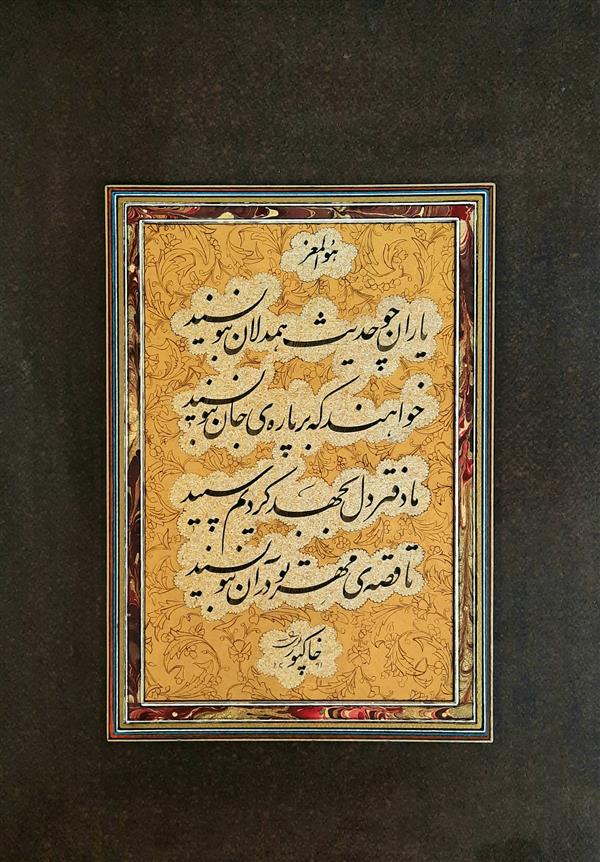 هوالمعز
یاران چو حدیث همدلان بنویسند
خواهند که بر پاره‌ی جان بنویسند
ما دفتر دل بجهد کردیم سپید
تا قصه‌ی مهر تو در آن بنویسند
خاکپور